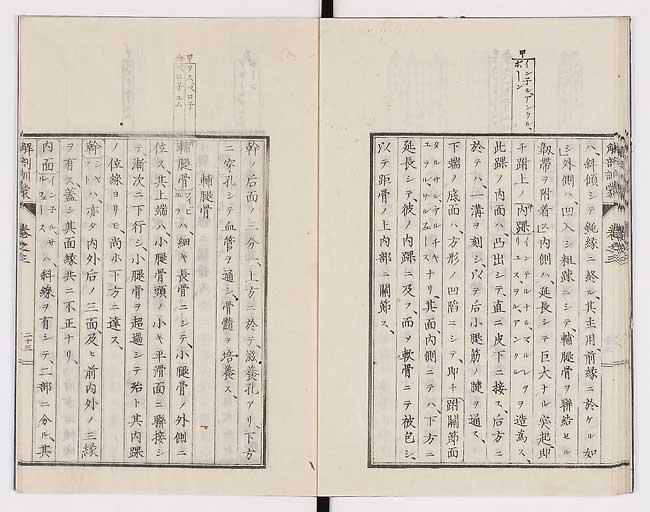 甲インテル、アンクル、ボーン
ハ、斜傾シテ鈍縁ニ終ル、其主用、前縁ニ於ケル如
シ、外側ハ、凹入シ粗踈ニシテ、輔腿骨ヲ聯結セル
靱帯ヲ附着ス、内側ハ、延長シテ巨大ナル突起即
チ跗上ノ内踝インテルナル、マルレヲリュス、ヲル、アンクルヲ造為ス、
此踝ノ内面ハ凸出シテ、直ニ皮下ニ接ス、后方ニ
於テハ、一溝ヲ刻シ、以テ后小腿筋ノ腱ヲ通ス、
下端ノ底面ハ、方形ノ凹陷ニシテ、即チ跗關節面
ナリ、其面内側ニテハ、下方ニ
延長シテ、彼ノ内踝ニ及フ、而ヲ軟骨ニテ被包シ、
以テ距骨ノ上内部ニ關節ス、
解剖訓蒙
卷之三
幹ノ后面ノ三分一上方ニ於テ、滋養孔アリ、下方
ニ穿孔シテ血管ヲ通シ、骨髓ヲ培養ス、
輔腿骨
輔腿骨ハ細キ長骨ニシテ、小腿骨ノ外側ニ
位ス、其上端ハ、小腿骨頭ノ小キ平滑面ニ聯接シ
テ、漸次ニ下行シ、小腿骨ヲ超過シテ、殆ト其内踝
ノ位線ヨリモ、尚ホ下方ニ達ス、
幹ハ、亦タ内外后ノ三面、及ヒ前内外ノ三縁
ヲ有ス、蓋シ其面縁共ニ不正ナリ、
内面インテルナルサルフェースハ、斜線ヲ有シテ、二部ニ分ル、其
解剖訓蒙
卷之三
二十三